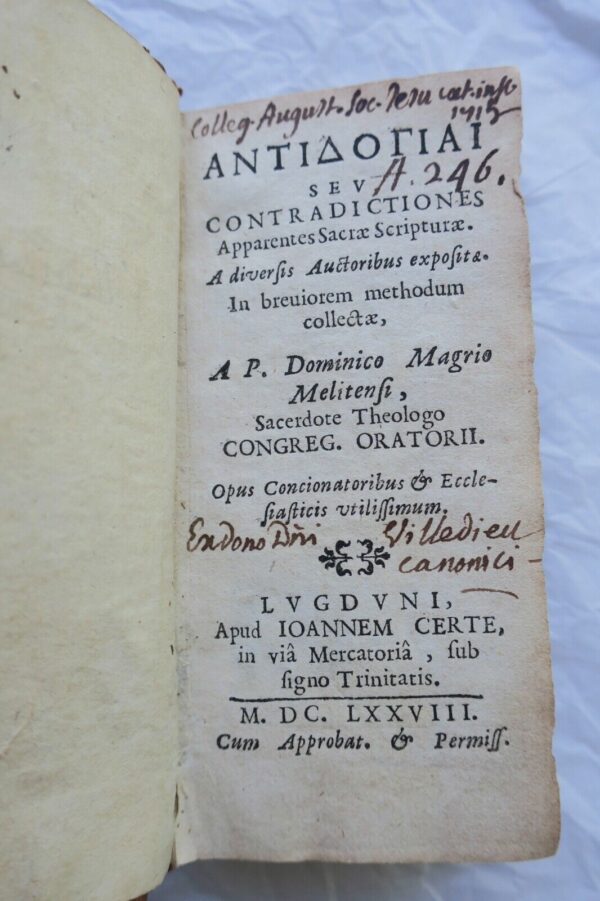 Colleg. August. Soc. Jesu cat. insc.
1715
ΑΝΤΙΔΟΓΙΑΙ
SEV
A. 246.
CONTRADICTIONES
Apparentes Sacræ Scripturæ.
A diversis Auctoribus expositæ.
In breuiorem methodum
collectæ,
A P. Dominico Magrio
Melitensi,
Sacerdote Theologo
CONGREG. ORATORII.
Opus Concionatoribus & Eccle-
siasticis vtilissimum.
Ex dono Dñi Villedieu
canonici
LVGDVNI,
Apud IOANNEM CERTE,
in viâ Mercatoriâ, sub
signo Trinitatis.
M. DC. LXXVIII.
Cum Approbat. & Permiss.